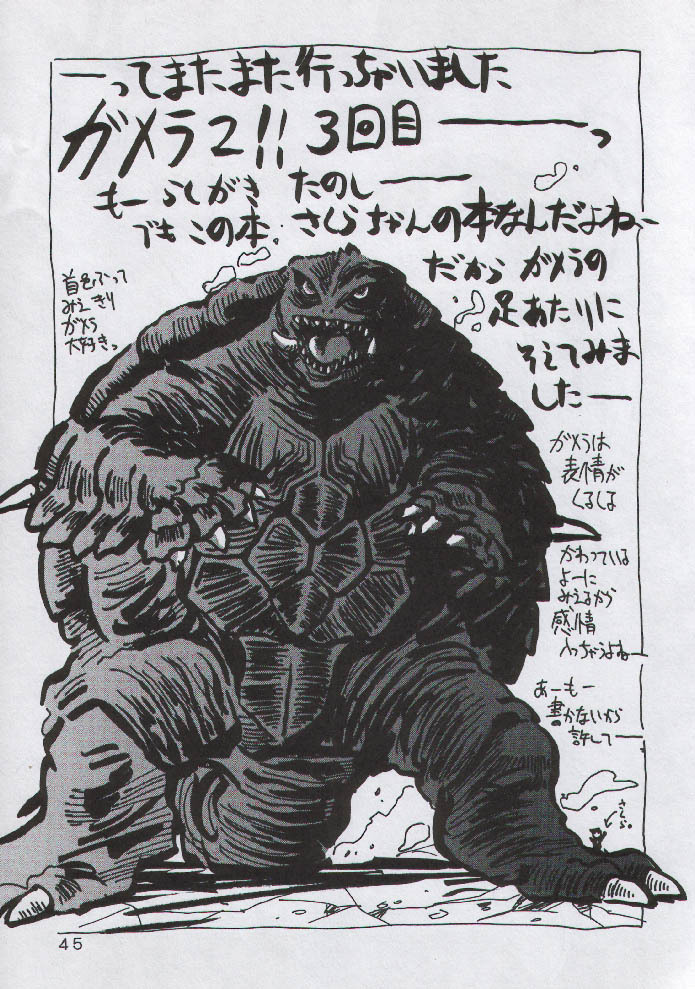 ーってまたまた行っちゃいました
ガメラ2!! 3回目ーーっ
もーらくがき たのしーー
でもこの本、さくらちゃんの本なんだよねー
だから ガメラの
足あたりに
そえてみま
したー
みえきり
ガメラ
大好きっ
ガメラは
表情が
かわっている
よーに
みえるから
感情
入っちゃうよねー
あーもー
書かないから
許してー
さくら。
45